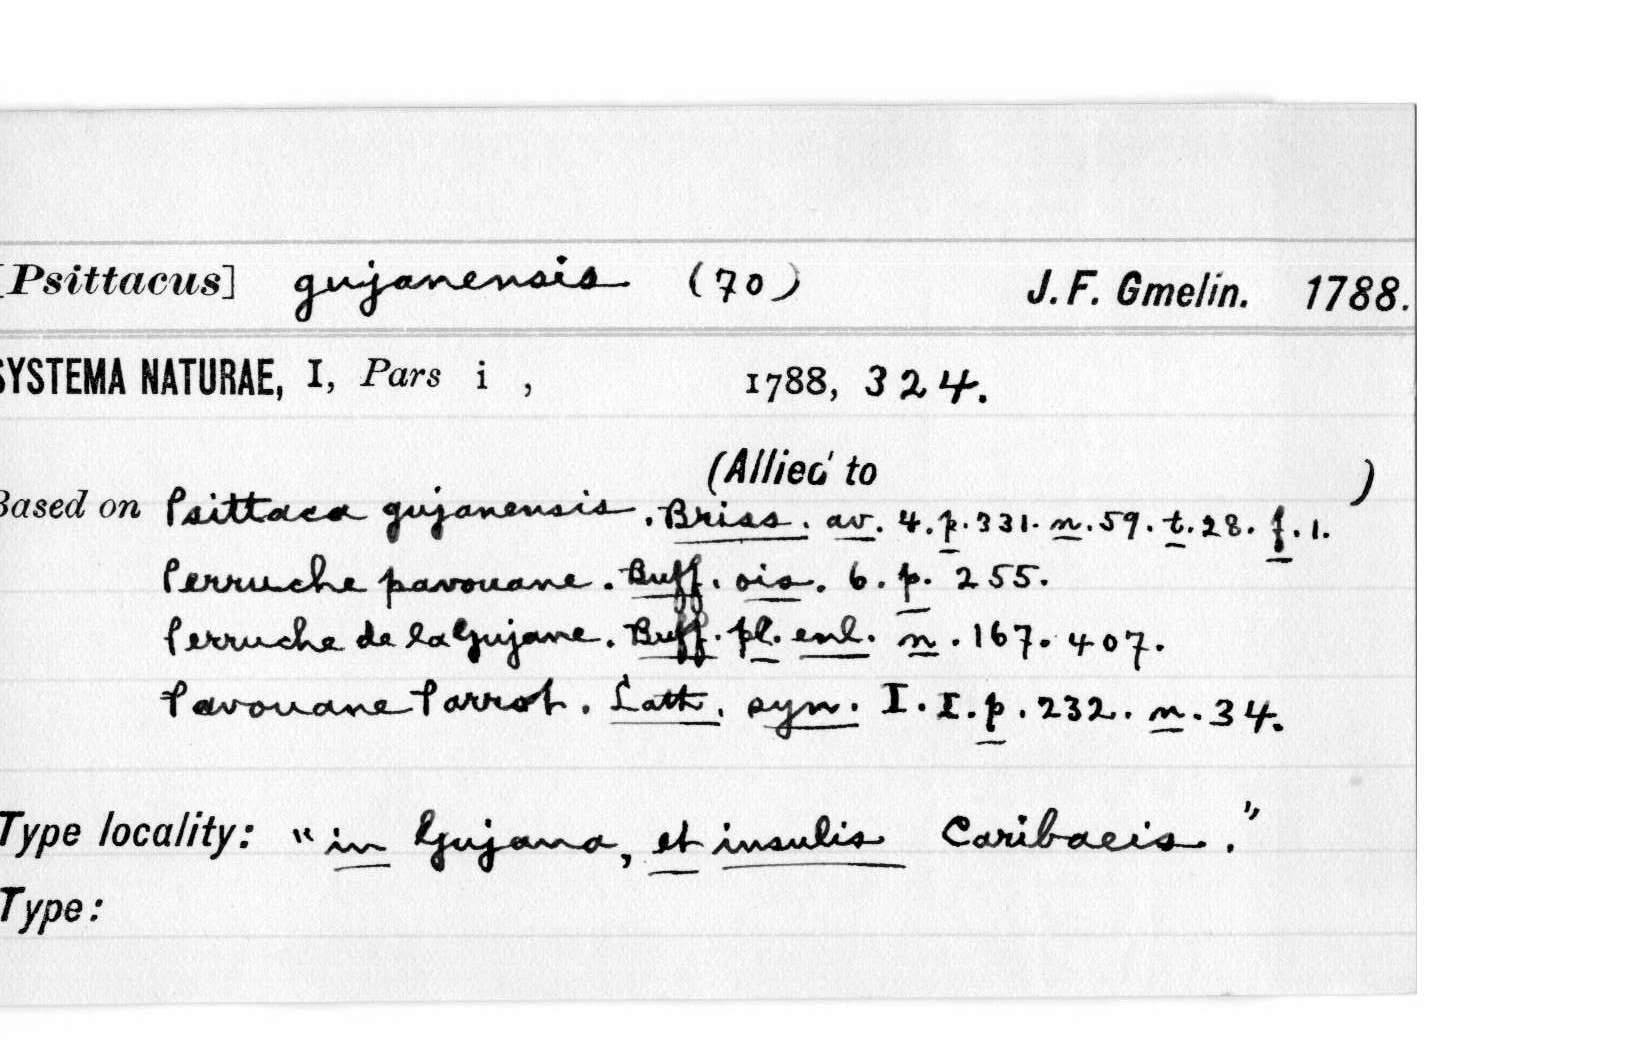 [Psittacus] gujanensis (70) J. F. Gmelin. 1788.
SYSTEMA NATURAE, I, Pars i , 1788, 324.
(Allied to )
Based on Psittaca gujanensis. Briss. av. 4. p. 331. n. 59. t. 28. f. 1.
Perruche pavouane. Buff. ois. 6. p. 255.
Perruche de la Gujane. Buff. pl. enl. n. 167. 407.
Pavouane Parrot. Lath. syn. I. I. p. 232. n. 34.
Type locality: "in Gujana, et insulis Caribaeis."
Type: